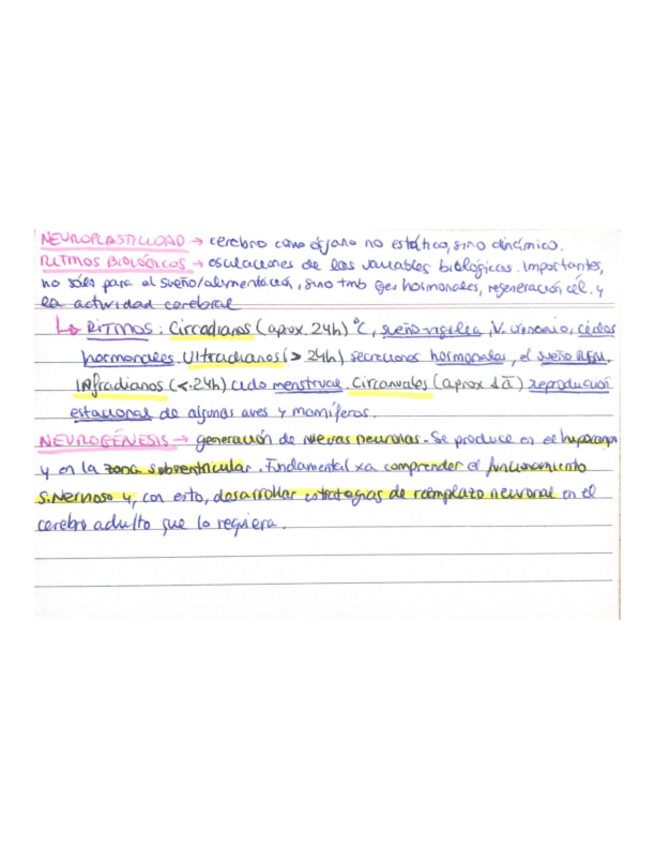 NEUROPLASTICIDAD → cerebro como órgano no estático, sino dinámico.
RITMOS BIOLÓGICOS → oscilaciones de las variables biológicas. Importantes,
no sólo para el sueño/alimentación, sino tmb ejes hormonales, regeneración cél. y
la actividad cerebral
↳ RITMOS: Circadianos (aprox. 24h) °C, sueño-vigilia, ciclos
hormonales. Ultradianos (> 24h) secreciones hormonales, el sueño REM.
Infradianos (<. 24h) ciclo menstrual. Circanuales (aprox 1 a) reproducción
estacional de algunas aves y mamíferos.
NEUROGÉNESIS → generación de nuevas neuronas. Se produce en el hipocampo
y en la zona subventricular. Fundamental xa comprender el funcionamiento
S. Nervioso y, con esto, desarrollar estrategias de reemplazo neuronal en el
cerebro adulto que lo requiera.